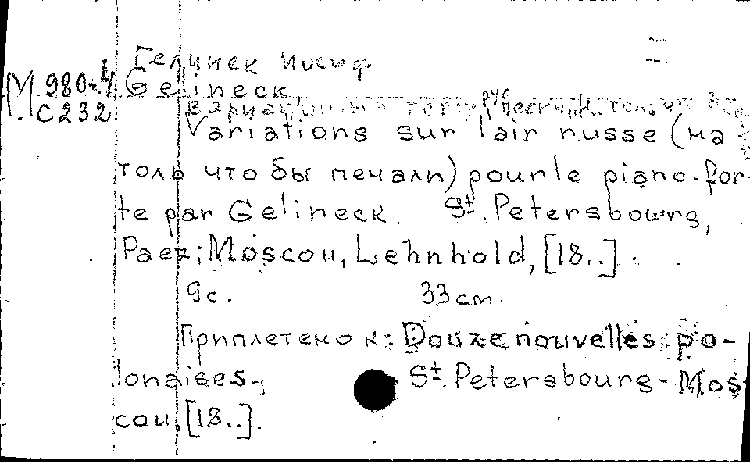 Гелинек Иосиф
М 980-4 Gelineck
С 232 Вариации на тему русской
Variations sur l'air russe (на
толь что бы печали) pour le piano-for-
te par Gelineck. St. Petersbourg,
Paez; Moscou, Lehnhold, [18..].
9с. 33 см
Приплетено к: Douze nouvelles po-
lonaises. St. Petersbourg - Mos-
cou, [18..].